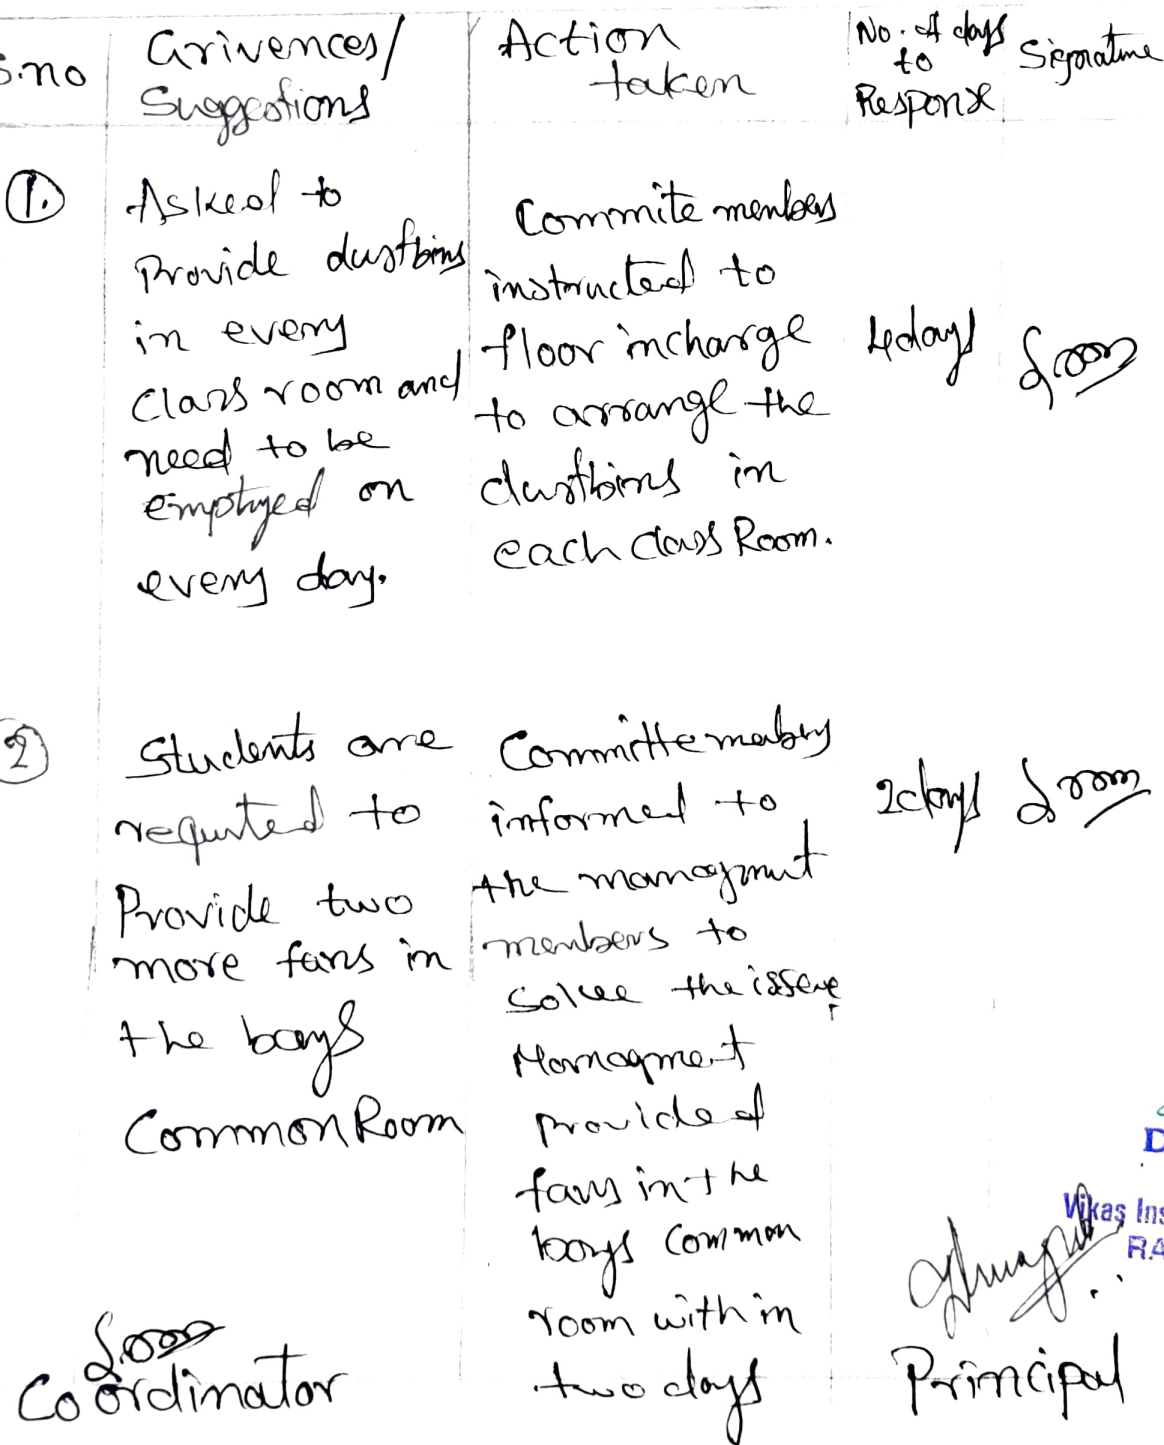 S.no
Grivences/
Suggestions
Action
taken
No. of days
to
Response
Signature
1.
Asked to
Provide dustbins
in every
Class room and
need to be
emptyed on
every day.
Commite members
instructed to
floor incharge
to arrange the
dustbins in
each class Room.
4days
2
Students are
requsted to
Provide two
more fans in
the boys
Common Room
Committe mebers
informed to
the managment
members to
Solve the issue,
Managment
provided
fans in the
boys common
room with in
two days
2days
Vikas Ins
RA
Coordinator
Principal